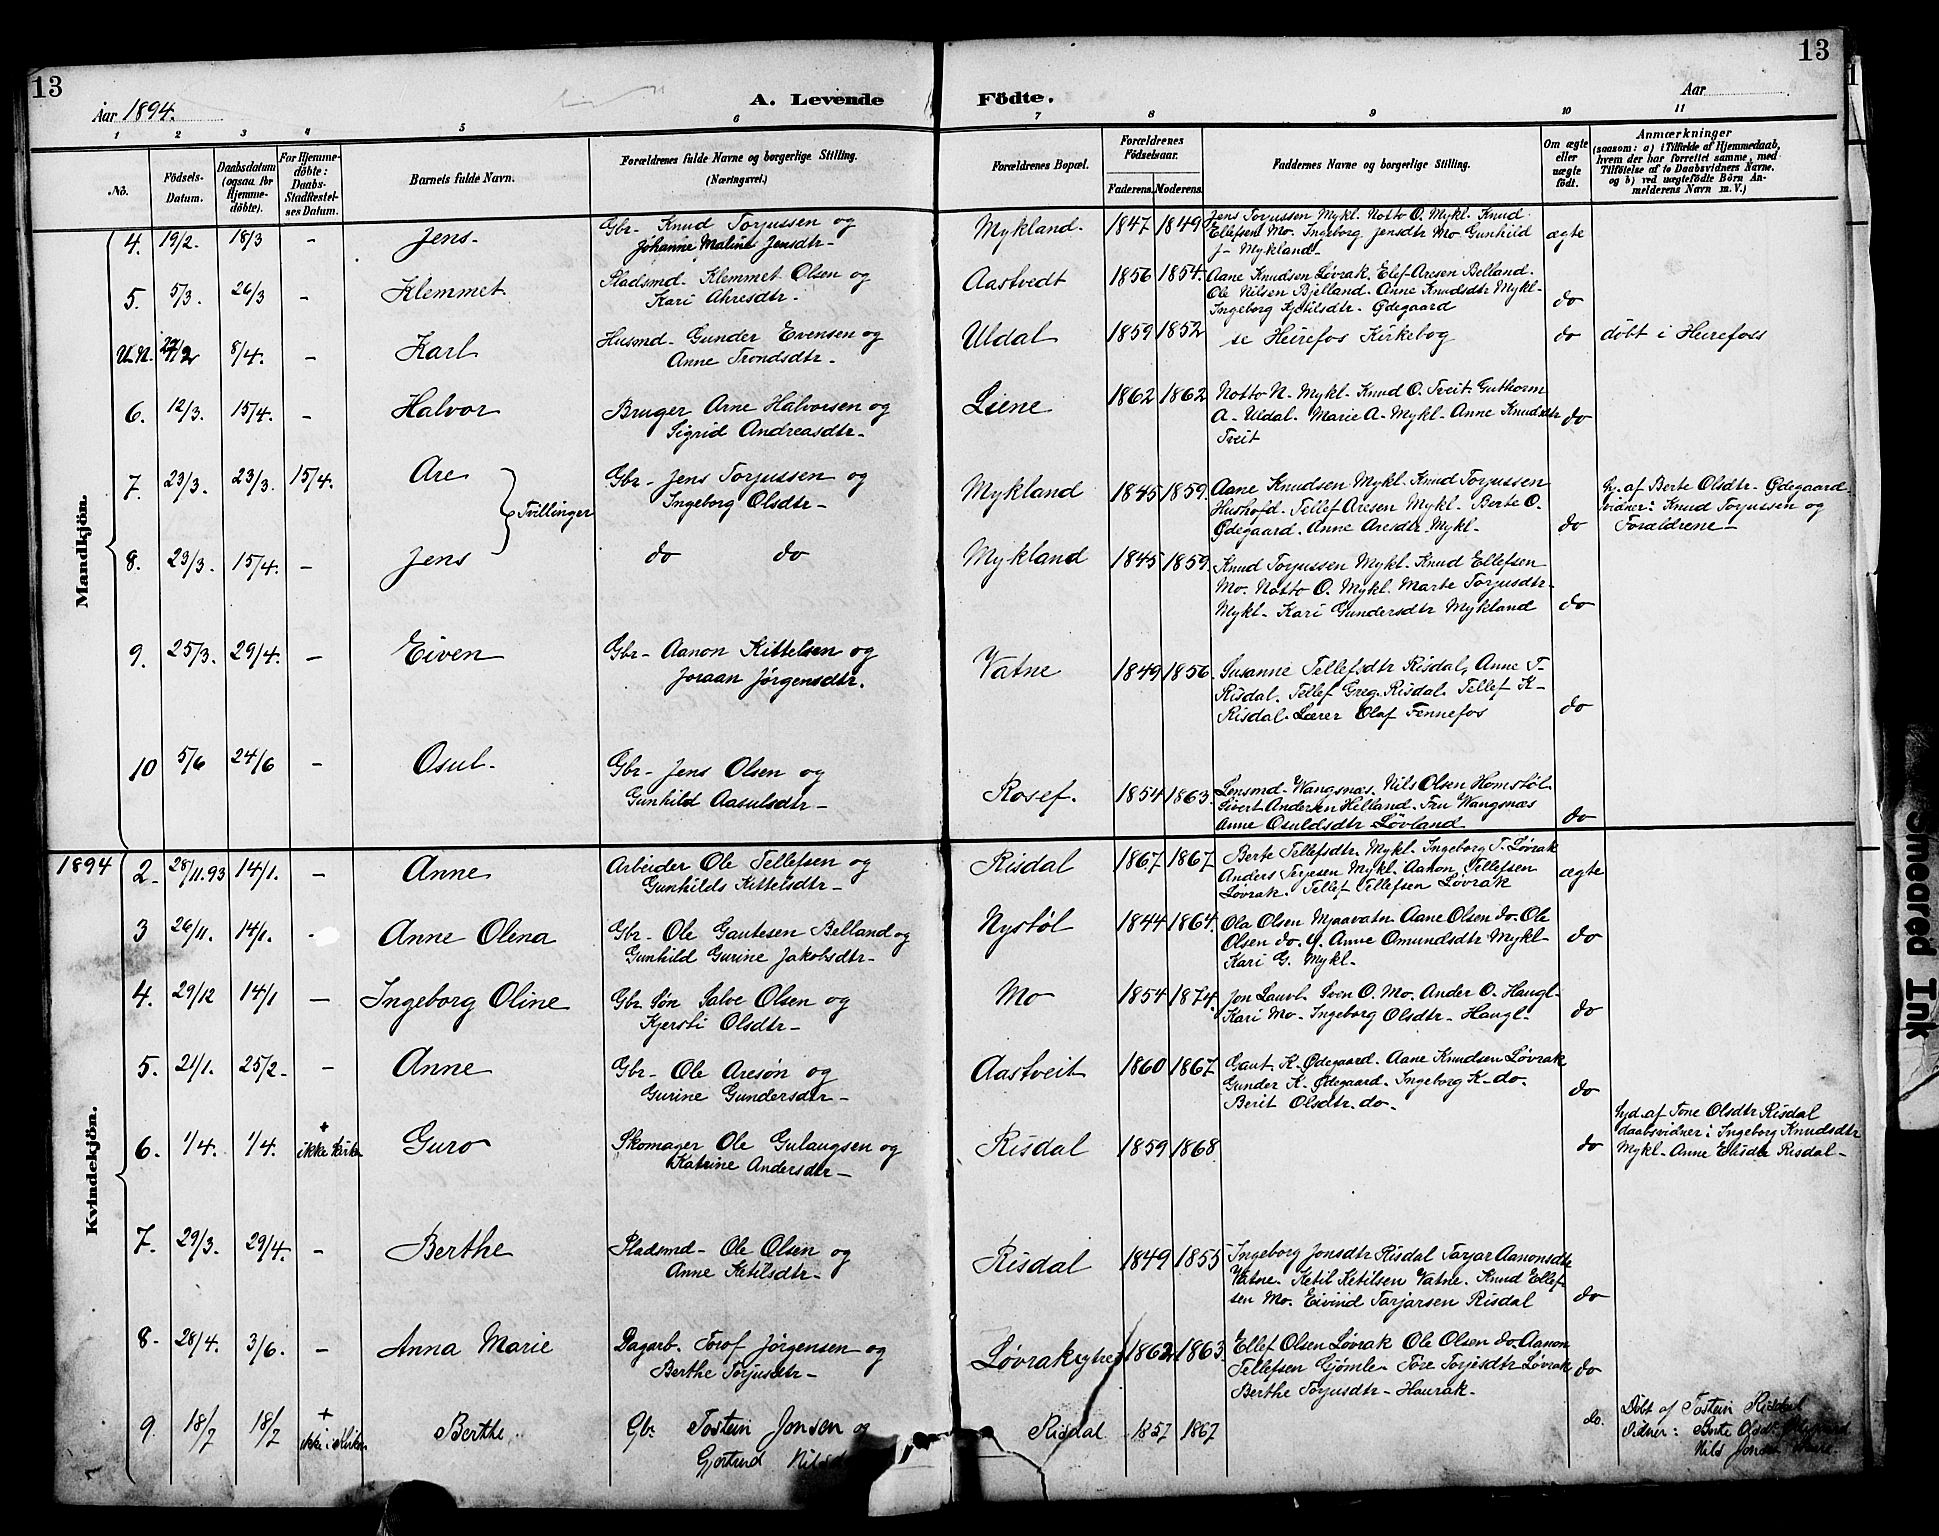 13
13
Aar 1894.
A. Levende Födte.
Aar
1 2 3 4 5 6 7 8 9 10 11
No.
Födsels-Datum.
Daabsdatum (ogsaa for Hjemme-döbte).
For Hjemme-döbte: Daabs-Stadfæstel-ses Datum.
Barnets fulde Navn.
Forældrenes fulde Navne og borgerlige Stilling. (Næringsvei.)
Forældrenes Bopæl.
Forældrenes Födselsaar.
Faderens. Moderens.
Faddernes Navne og borgerlige Stilling.
Om ægte eller uægte födt.
Anmærkninger
(saasom: a) i Tilfælde af Hjemmedaab,
hvem der har forrettet samme, med
Tilföielse af to Daabsvidners Navne.
og b) ved uægtefödte Börn An-
melderens Navn m. V.)
Mandkjön.
4. 19/2. 18/3 - Jens. Gbr. Knud Torjussen og Mykland. 1847 1849 Jens Torjussen Mykl. Notto O. Mykl. Knud
Johanne Maline Jensdtr- Ellefsen Mo. Ingeborg Jensdtr Mo Gunhild ægte
J- Mykland.
5. 5/3. 26/3 - Klemmet Pladsmd- Klemmet Olsen og Aastvedt 1856 1854. Aane Knudsen Løvrak. Elef Aresen Belland.
Kari Ahresdtr- Ole Nilsen Bjelland. Anne Knudsdtr Mykl- do
Ingeborg Kjetilsdtr- Ødegaard
U.N. 27/2 8/4. - Karl Husmd- Gunder Evensen og Uldal 1859 1852 se Heirefos Kirkebog do døbt i Heirefoss
Anne Trondsdtr-
6. 12/3. 15/4. - Halvor Bruger Arne Halvorsen og Liene 1862 1862 Notto N. Mykl- Knud O. Tveit. Guthorm
Sigrid Andreasdtr- A- Uldal. Marie A- Mykl- Anne Knudsdtr do
Tveit
7. 23/3. 23/3. 15/4. Are Gbr- Jens Torjussen og Mykland 1845 1859. Aane Knudsen Mykl. Knud Torjussen Hj. af Berte Olsdtr- Ødegaard-
Tvillinger Ingeborg Olsdtr- Tellef Aresen Mykl- Berte O. vidner: Knud Torjussen og
Ødegaard. Anne Aresdtr- Mykl- do Forældrene-
8. 23/3. 15/4. - Jens do do Mykland 1845 1859. Knud Torjussen Mykl- Knud Ellefsen
Mo. Notto O. Mykl. Marte Torjusdtr-
Mykl- Kari Gundersdtr Mykland do
9. 25/3. 29/4. - Eiven Gbr- Aanon Kittelsen og Vatne 1849 1856. Susanne Tellefsdtr Risdal, Anne T-
Joraan Jørgensdtr. Risdal. Tellef Greg. Risdal. Tellef K-
Risdal- Lærer Olaf Fennefos do
10 5/6 24/6 - Osul- Gbr- Jens Olsen og Rosef. 1854 1863. Lensmd- Wangsnæs. Nils Olsen Homstøl
Gunhild Aasulsdtr- Sivert Andersen Helland. Fru Wangsnæs
Anne Osuldsdtr Løvland do
Kvindekjön.
1894 2. 28/11.93 14/1. - Anne Arbeider Ole Tellefsen og Risdal 1867 1867 Berte Tellefsdtr. Mykl. Ingeborg T. Løvrak
Gunhilds Kittelsdtr- Anders Terjesen Mykl. Aanon Tellefsen ægte
Løvrak. Tellef Tellefsen Løvrak
3 26/11. 14/1. - Anne Olena Gbr- Ole Gautesen Belland og Nystøl 1844 1864. Ola Olsen Mjaavatn. Aane Olsen do. Ole
Gunhild Gurine Jakobsdtr- Olsen do. Anne Omundsdtr Mykl- do
Kari G. Mykl-
4. 29/12 14/1 - Ingeborg Oline Gbr. Søn Salve Olsen og Mo 1854 1874. Jon Lauvl- Sven O. Mo. Ander O. Haugl-
Kjersti Olsdtr- Kari Mo- Ingeborg Olsdtr- Haugl- do
5. 21/1. 25/2- - Anne Gbr- Ole Aresøn og Aastveit 1860 1867. Gaut K. Ødegaard. Aane Knudsen Løvrak
Gurine Gundersdtr- Gunder K- Ødegaard. Ingeborg K- do.
Berit Olsdtr. do. do
6. 1/4. 1/4. + ikke Kirken Guro Skomager Ole Gulaugsen og Risdal 1859 1868 do Hjd. af Tone Olsdtr Risdal
Katrine Andersdtr- daabsvidner: Ingeborg Knudsdtr
Mykl- Anne Elisdtr Risdal-
7. 29/3. 29/4. - Berthe Pladsmd- Ole Olsen og Risdal 1849 1855 Ingeborg Jonsdtr Risdal Tarjar Aanonsdtr
Anne Ketilsdtr- Vatne- Ketil Ketilsen Vatne. Knud Ellef-
sen Mo. Eivind Tarjarsen Risdal do
8. 28/4. 3/6. - Anna Marie Dagarb- Torof Jørgensen og 1862 1863. Ellef Olsen Løvrak Ole Olsen do. Aanon
Berthe Torjusdtr- Tellefsen Gjømle- Tore Torjesdtr Løvrak do
Berthe Torjusdtr- Haurak-
9. 18/7 18/7 + ikke i Kirken Berthe. Gb. Tostein Jonsen og Risdal 1857 1867 do. Døbt af Tostein Risdal
Gjertrud Nils Vidner: Berte Olsdtr
Nils
Smeared Ink